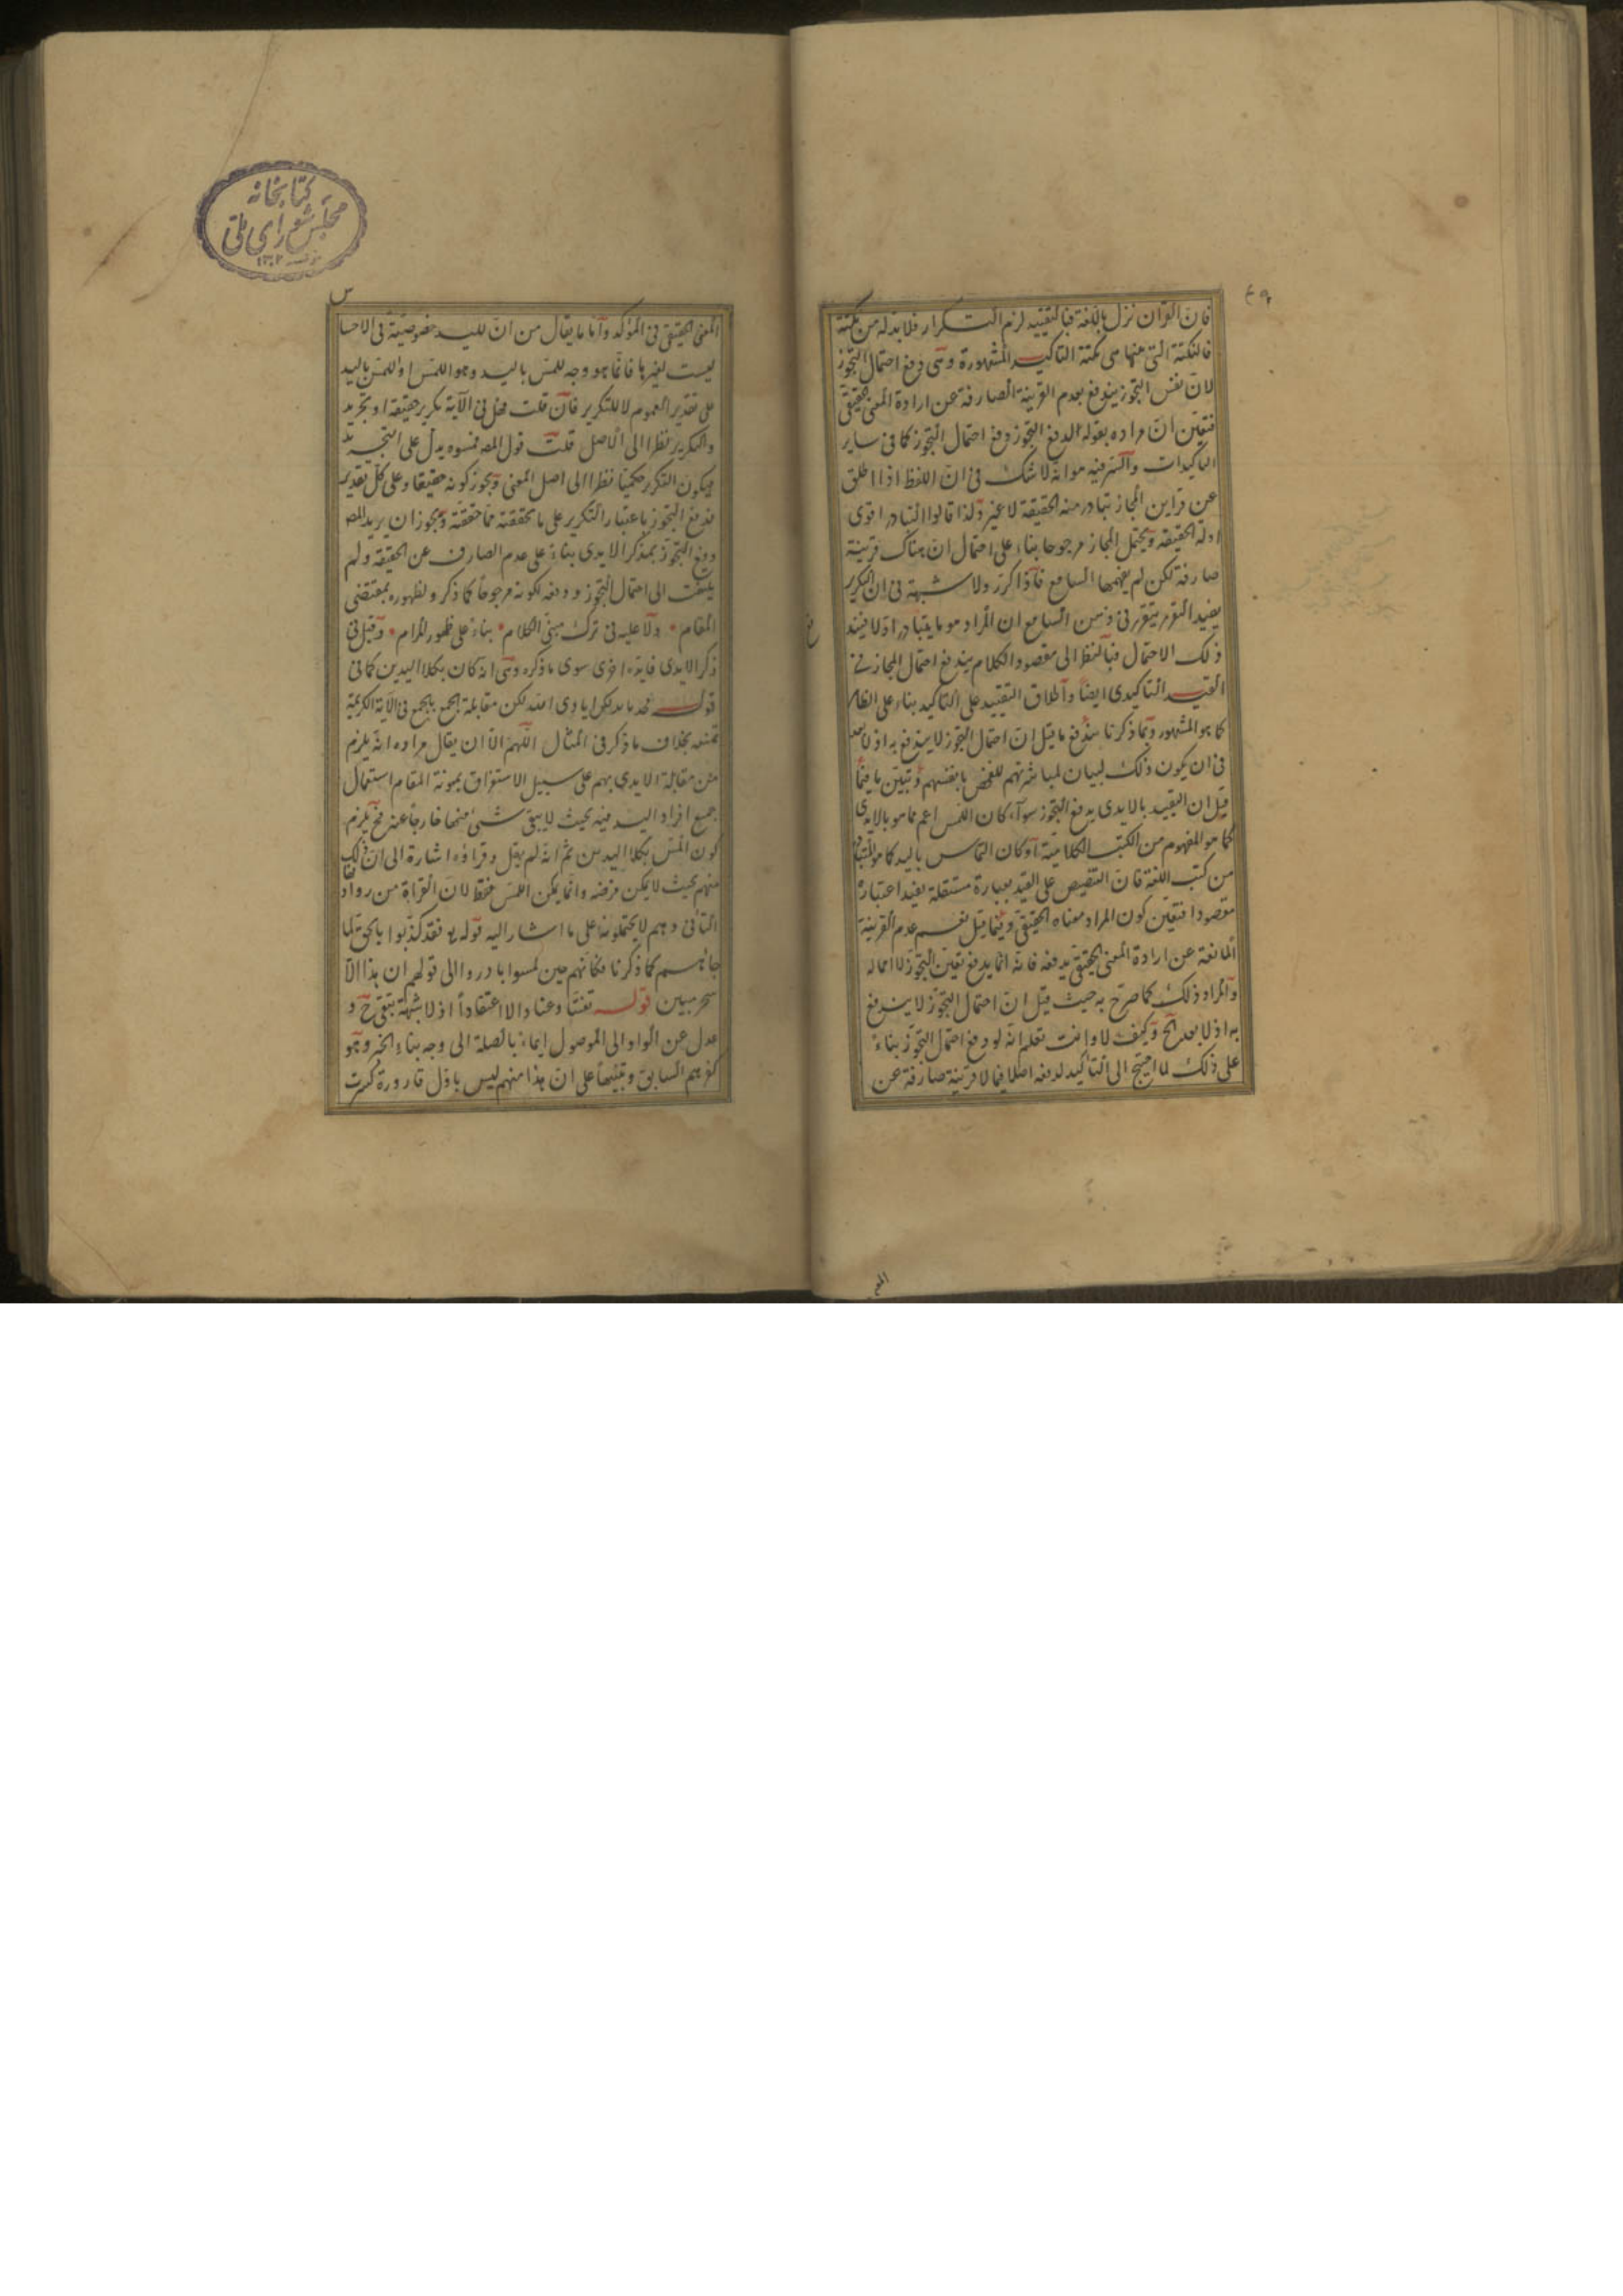 ٤٩
فان القرآن نزل باللغة فبالتقييد لزم التكرار فلا بد له من نكتة
فالنكتة التى منها هى نكتة التاكيد المشهورة وهى دفع احتمال التجوز
لان نفس التجوز يندفع بعدم القرينة الصارفة عن ارادة المعنى الحقيقى
فتعين ان مراده بقوله لدفع التجوز دفع احتمال التجوز كما فى ساير
التاكيدات والسر فيه هو انه لا شك فى ان اللفظ اذا اطلق
عن قراين المجاز يتبادر منه الحقيقة لا غير ولذا قالوا التبادر اقوى
ادلة الحقيقة ويحتمل المجاز مرجوحا بناء على احتمال ان هناك قرينة
صارفة لكن لم يفهمها السامع فاذا كرر ولا شبهة فى ان التكرير
يفيد التقرر يتقرر فى ذهن السامع ان المراد هو ما يتبادر اولا فيند
فع
ذلك الاحتمال فبالنظر الى مقصود الكلام يندفع احتمال المجاز فى
القيد التاكيدى ايضا واطلاق التقييد على التاكيد بناء على الظاهر
كما هو المشهور وبما ذكرنا يندفع ما قيل ان احتمال التجوز لا يندفع به اذ لا بعد
فى ان يكون ذلك لبيان لمباشرتهم للفحص بانفسهم وتبين ما فيما
قيل ان التقييد بالايدى يدفع التجوز سواء كان اللمس اعم مما هو بالايدى
كما هو المفهوم من الكتب الكلامية او كان التماس باليد كما هو
من كتب اللغة فان التنصيص على القيد بعبارة مستقلة يفيد اعتباره
مقصودا فتعين كون المراد معناه الحقيقى وفيما قيل نعم عدم القرينة
المانعة عن ارادة المعنى الحقيقى يدفعه فانه انما يدفع تعين التجوز لا احماله
والمراد ذلك كما صرح به حيث قيل ان احتمال التجوز لا يندفع
به اذ لا بعد الخ وكيف لا وانت تعلم انه لو دفع احتمال التجوز بناء
على ذلك لما احتيج الى التاكيد لدفعه اصلا فيما لا قرينة صارفة عن
المعنى
كتابخانه
مجلس شوراى ملى
١٣٠٢
المعنى الحقيقى فى المؤكد واما ما يقال من ان لليد خصوصية فى الاحسا
س
ليست لغيرها فانما هو وجه للمس باليد وهو اللمس او اللمس باليد
على تقدير العموم لا للتكرير فان قلت فهل فى الآية تكرير حقيقة او تجريد
والتكرير نظرا الى الاصل قلت قول المصه فمسوه يدل على التجريد
فيكون التكرير حكميا نظرا الى اصل المعنى ويجوز كونه حقيقا وعلى كل تقدير
فدفع التجوز باعتبار التكرير على ما تحققته مما حققته ويجوز ان يريد المصه
دفع التجوز بمذكر الايدى بناء على عدم الصارف عن الحقيقة ولم
يلتفت الى احتمال التجوز ودفعه لكونه مرجوحا كما ذكر ولظهوره بمقتضى
المقام ولا عليه فى ترك مبنى الكلام بناء على ظهور المرام وقيل فى
ذكر الايدى فايدة اخرى سوى ما ذكره وهى انه كان بكلا اليدين كما فى
قوله لكن مقابلة الجمع بالجمع فى الآية الكريمة
تمنعه بخلاف ما ذكر فى المثال اللهم الا ان يقال مراده انه يلزم
من مقابلة الايدى بهم على سبيل الاستغراق بمونة المقام استعمال
جميع افراد اليد فيه بحيث لا يبقى شئ منها خارجا عنه فح يلزم
كون المس بكلا اليدين ثم انه لم يقل وقراؤه اشارة الى ان ذلك
منهم بحيث لا يمكن فرضه وانما يمكن اللمس فقط لان القراءة من
التأنى وهم لا يحتملونه على ما اشار اليه قوله تع فقد كذبوا بالحق لما
جائهم كما ذكرنا فكانهم حين لمسوا بادروا الى قولهم ان هذا الا
سحر مبين قوله تعنتا وعنادا لا اعتقادا اذ لا شبهة تبقى ح و
عدل عن الواو الى الموصول ايماء بالصلة الى وجه بناء الخبر وهو
كفرهم السابق وتنبيها على ان هذا منهم ليس باول قارورة كسرت